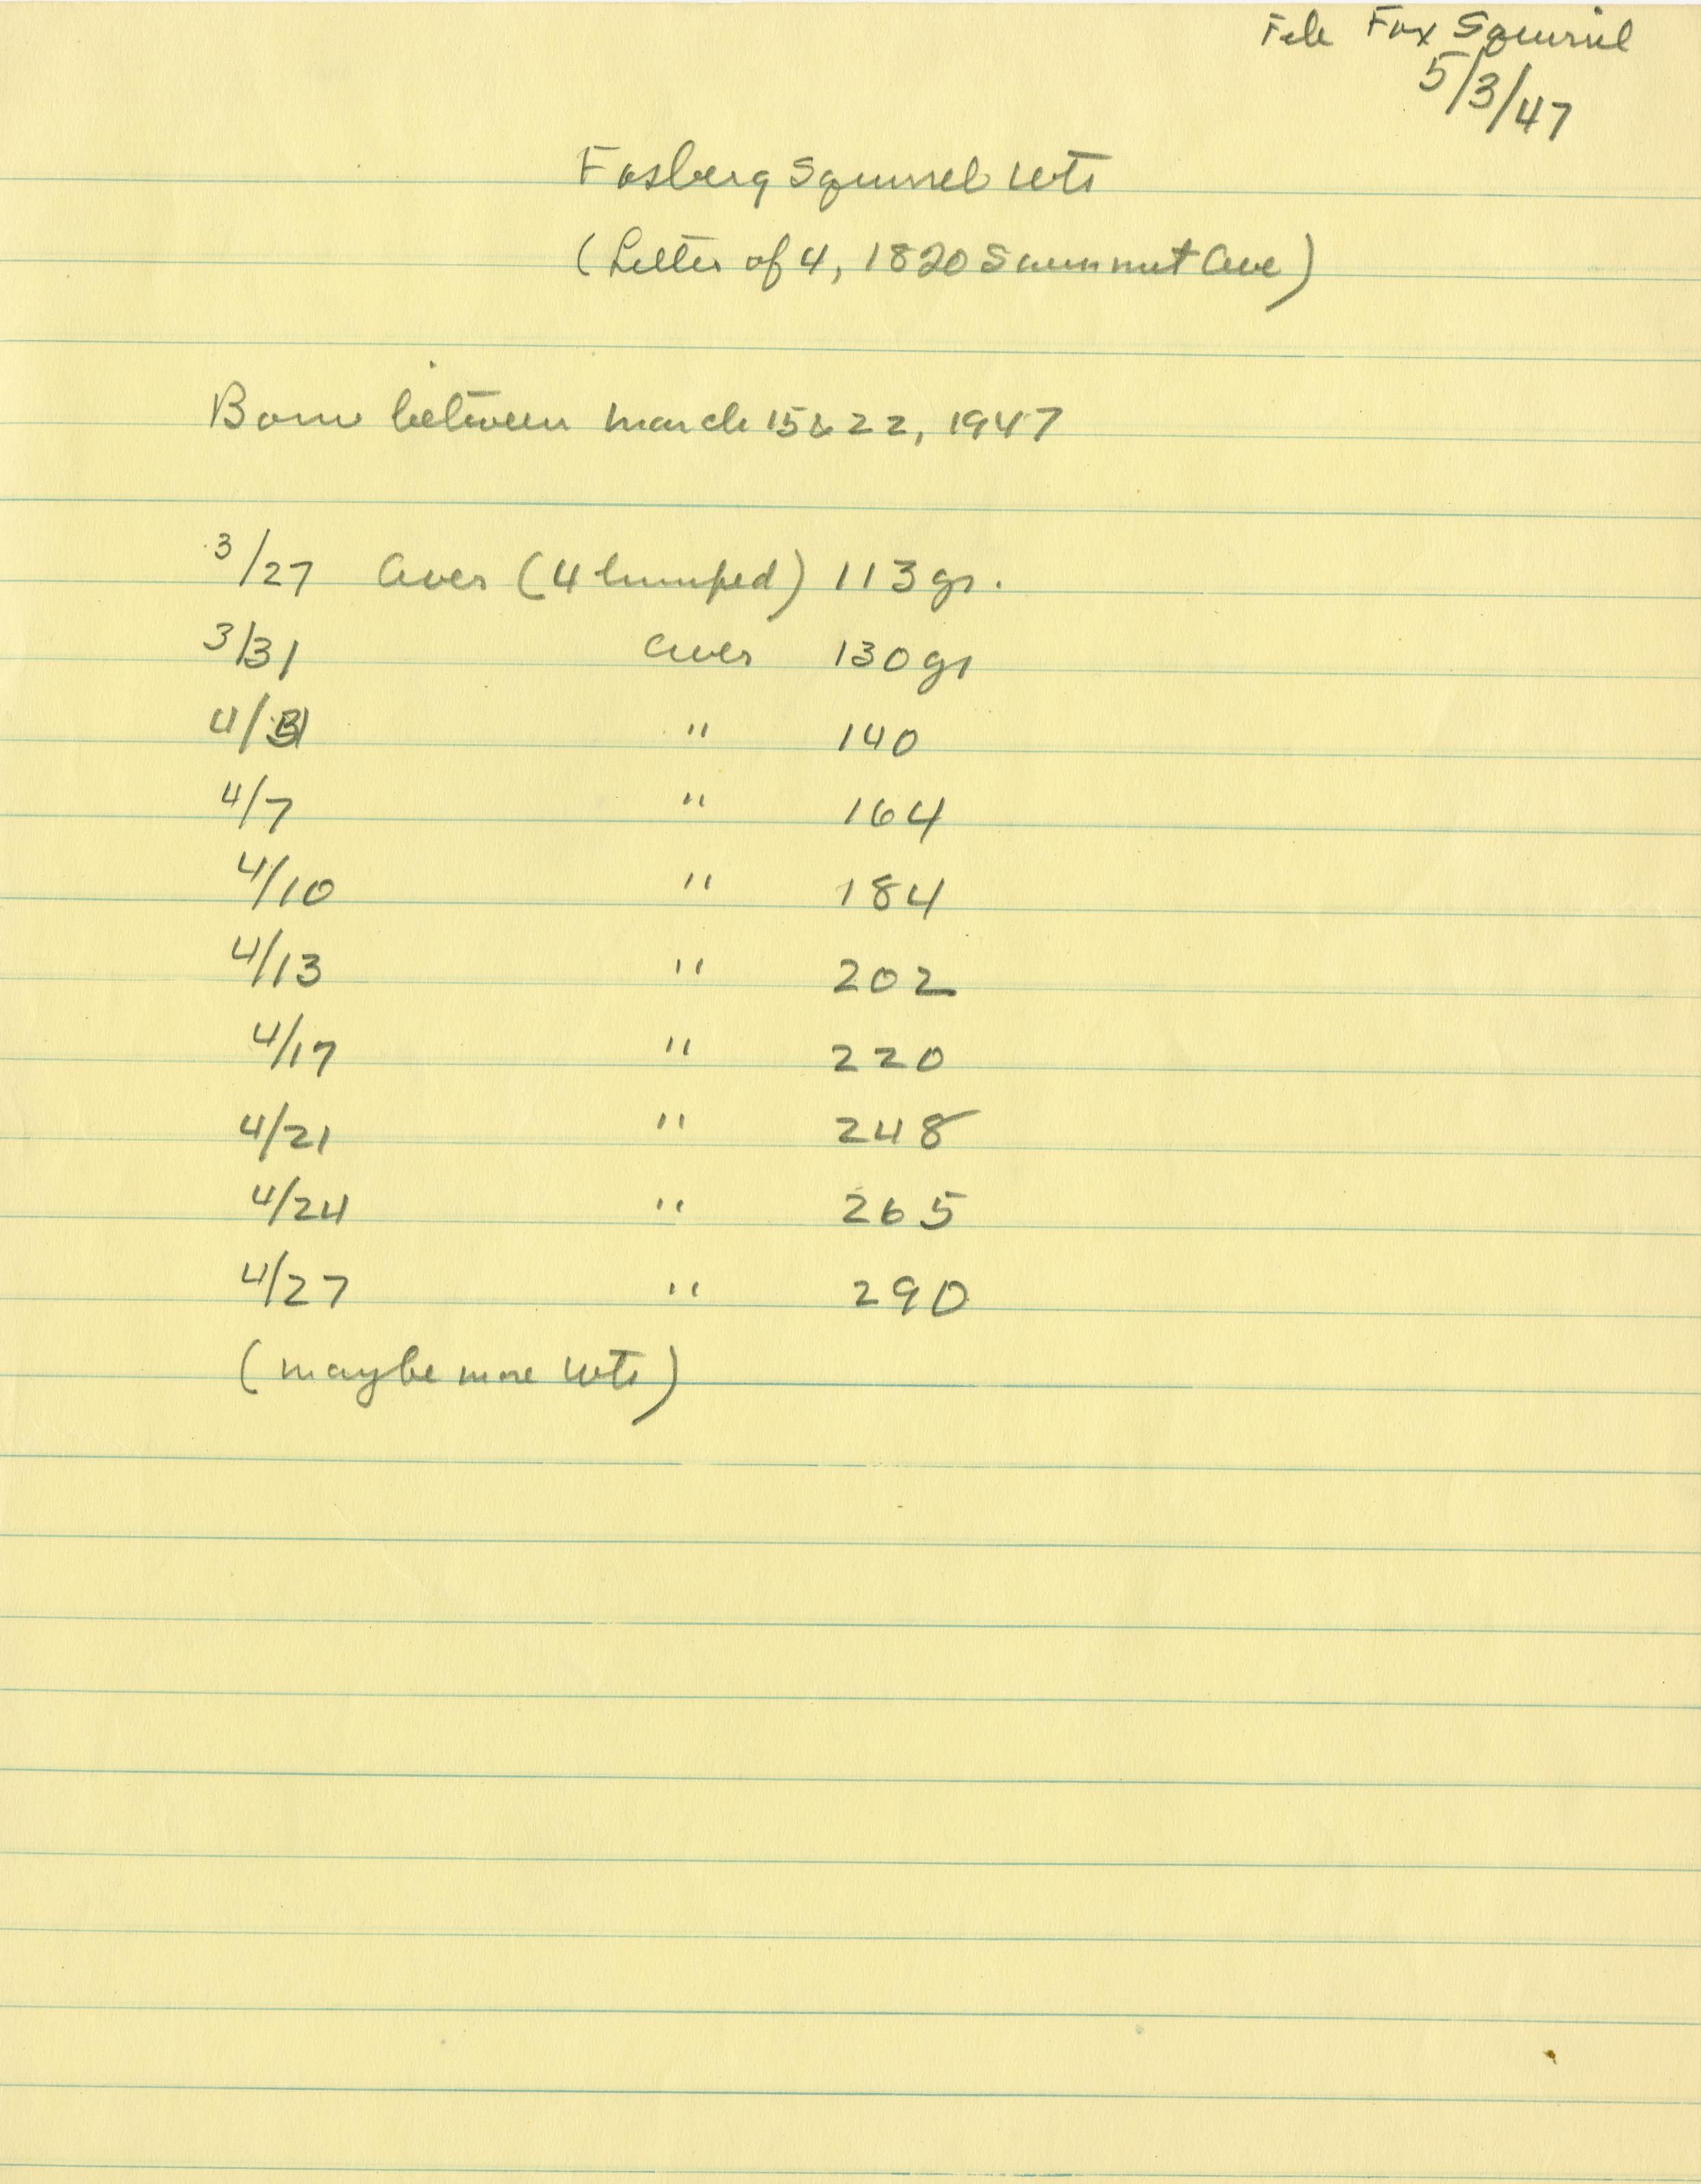 File Fox Squirrel
5/3/47
Fosberg Squirrel wts
(Litter of 4, 1820 Summit Ave)
Born between March 15 & 22, 1947
3/27 Aver (4 lumped) 113 gr.
3/31 Aver 130 gr
4/3 " 140
4/7 " 164
4/10 " 184
4/13 " 202
4/17 " 220
4/21 " 248
4/24 " 265
4/27 " 290
(maybe more wts)